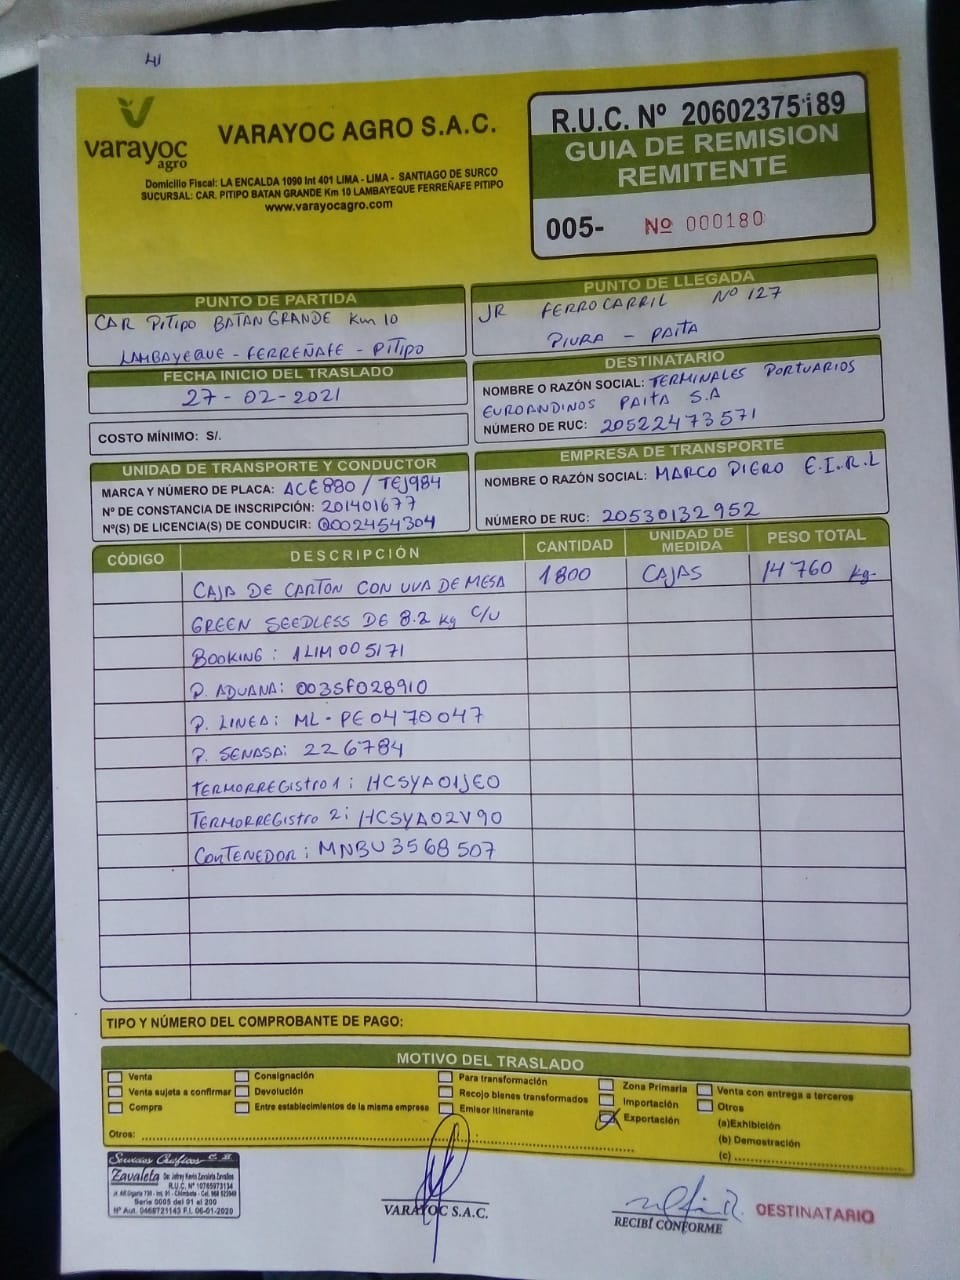 41
varayoc
agro
VARAYOC AGRO S.A.C.
Domicilio Fiscal: LA ENCALDA 1090 Int 401 LIMA - LIMA - SANTIAGO DE SURCO
SUCURSAL: CAR. PITIPO BATAN GRANDE Km 10 LAMBAYEQUE FERREÑAFE PITIPO
www.varayocagro.com
R.U.C. Nº 20602375189
GUIA DE REMISION
REMITENTE
005- Nº 000180
PUNTO DE PARTIDA
CAR PITIPO BATAN GRANDE Km 10
LAMBAYEQUE - FERREÑAFE - PITIPO
PUNTO DE LLEGADA
JR FERROCARRIL Nº 127
PIURA - PAITA
FECHA INICIO DEL TRASLADO
27-02-2021
COSTO MÍNIMO: S/.
DESTINATARIO
NOMBRE O RAZÓN SOCIAL: TERMINALES PORTUARIOS
EUROANDINOS PAITA S.A
NÚMERO DE RUC: 20522473571
UNIDAD DE TRANSPORTE Y CONDUCTOR
MARCA Y NÚMERO DE PLACA: ACE880 / TEJ984
Nº DE CONSTANCIA DE INSCRIPCIÓN: 201401677
Nº(S) DE LICENCIA(S) DE CONDUCIR: Q002454304
EMPRESA DE TRANSPORTE
NOMBRE O RAZÓN SOCIAL: MARCO PIERO E.I.R.L
NÚMERO DE RUC: 20530132952
CÓDIGO DESCRIPCIÓN CANTIDAD UNIDAD DE MEDIDA PESO TOTAL
CAJA DE CARTON CON UVA DE MESA 1800 CAJAS 14760 kg-
GREEN SEEDLESS DE 8.2 kg c/u
BOOKING: 1LIM005171
P. ADUANA: 003SF028910
P. LINEA: ML-PE0470047
P. SENASA: 226784
TERMORREGISTRO 1: HCSYA01JE0
TERMORREGISTRO 2: HCSYA02V90
CONTENEDOR: MNBU 3568507
TIPO Y NÚMERO DEL COMPROBANTE DE PAGO:
MOTIVO DEL TRASLADO
Venta Consignación Para transformación Zona Primaria Venta con entrega a terceros
Venta sujeta a confirmar Devolución Recojo bienes transformados Importación Otros
Compra Entre establecimientos de la misma empresa Emisor Itinerante Exportación (a)Exhibición
(b) Demostración
Otros: (c)
Servicios Gráficos
Zavaleta De: Jefrey Kevin Zavaleta Zavaleta
R.U.C. Nº 10765973134
Serie 0005 del 01 al 200
Nº Aut. 0468721143 F.I. 06-01-2020
VARAYOC S.A.C.
RECIBÍ CONFORME
DESTINATARIO